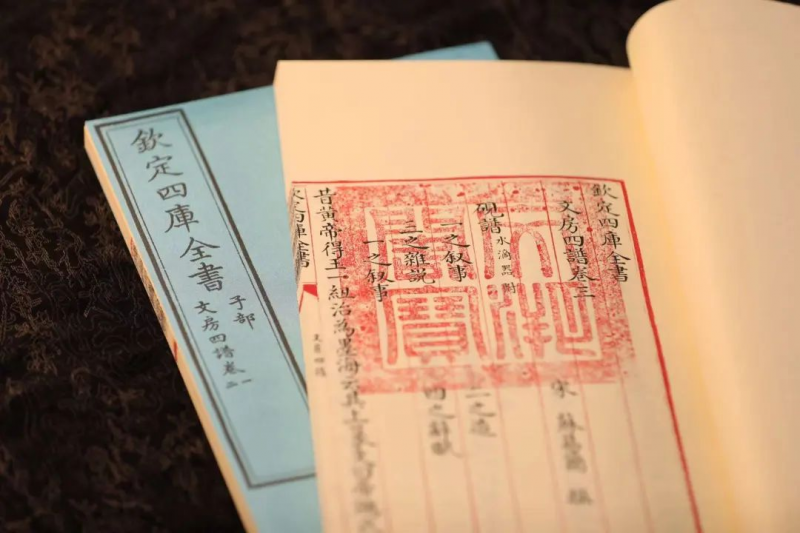 欽定四庫全書
子部
文房四譜卷一二
欽定四庫全書
文房四譜卷三
宋 蘇易簡 撰
硯譜水滴器附
一之叙事 二之造
三之雜說 四之辭賦
一之叙事
昔黃帝得玉一紐治為墨海云其上
四庫全書
文房四譜
文淵閣寶